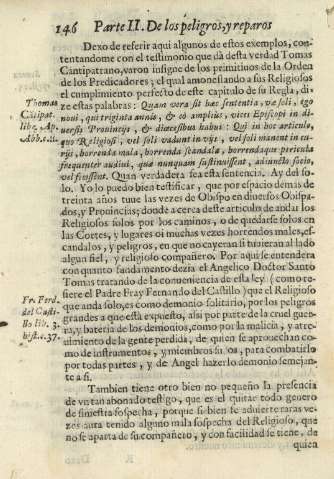 146 Parte II. De los peligros, y reparos
Dexo de referir aqui algunos de estos exemplos, con-
tentandome con el testimonio que dà desta verdad Tomas
Cantipatrano, varon insigne de los primitivos de la Orden
de los Predicadores; el qual amonestando a sus Religiosos
el cumplimiento perfecto de este capitulo de su Regla, di-
Thomas
Cãtipat.
lib. Ap.
ze estas palabras: Quam vera sit hæc sententia, væ soli, ego
noui, qui triginta annis, & eò amplius, vices Episcopi in di-
uersis Prouincijs, & diœcesibus habui: Qui in hoc articulo,
quo Religiosi, vel soli vadunt in vijs, vel soli manent in cu-
rijs, horrenda mala, horrenda scandala, horrendaque pericula
frequenter audiui, quæ nunquam sustinuissent, adiuncto socio,
vel fuissent. Quan verdadera sea esta sentencia. Ay del so-
lo. Yo lo puedo bien testificar, que por espacio demas de
treinta años tuue las vezes de Obispo en diuersos Obispa-
dos, y Prouincias; donde acerca deste articulo de andar los
Religiosos solos por los caminos, o de quedarse solos en
las Cortes, y lugares oi muchas vezes horrendos males, es-
candalos, y peligros, en que no cayeran si tuuieran al lado
algun fiel, y religioso compañero. Por aqui se entenderà
con quanto fundamento dezia el Angelico Doctor Santo
Tomas tratando de la conueniencia de esta ley (como re-
Fr. Ferd.
del Casti-
llo lib. 3.
hist. c. 37.
fiere el Padre Fray Fernando del Castillo) que el Religioso
que anda solo, es como demonio solitario, por los peligros
grandes a que està expuesto, assi por parte de la cruel gue-
rra, y bateria de los demonios, como por la malicia, y atre-
uimiento de la gente perdida, de quien se aprouechan co-
mo de instrumentos, y miembros suyos, para combatirlo
por todas partes, y de Angel hazerlo demonio semejan-
te a si.
Tambien tiene otro bien no pequeño la presencia
de vn tan abonado testigo, que es el quitar todo genero
de siniestra sospecha, porque si bien se aduierte raras ve-
zes aura tenido alguno mala sospecha del Religioso, que
no se aparta de su compañero, y con facilidad se tiene, de
quien